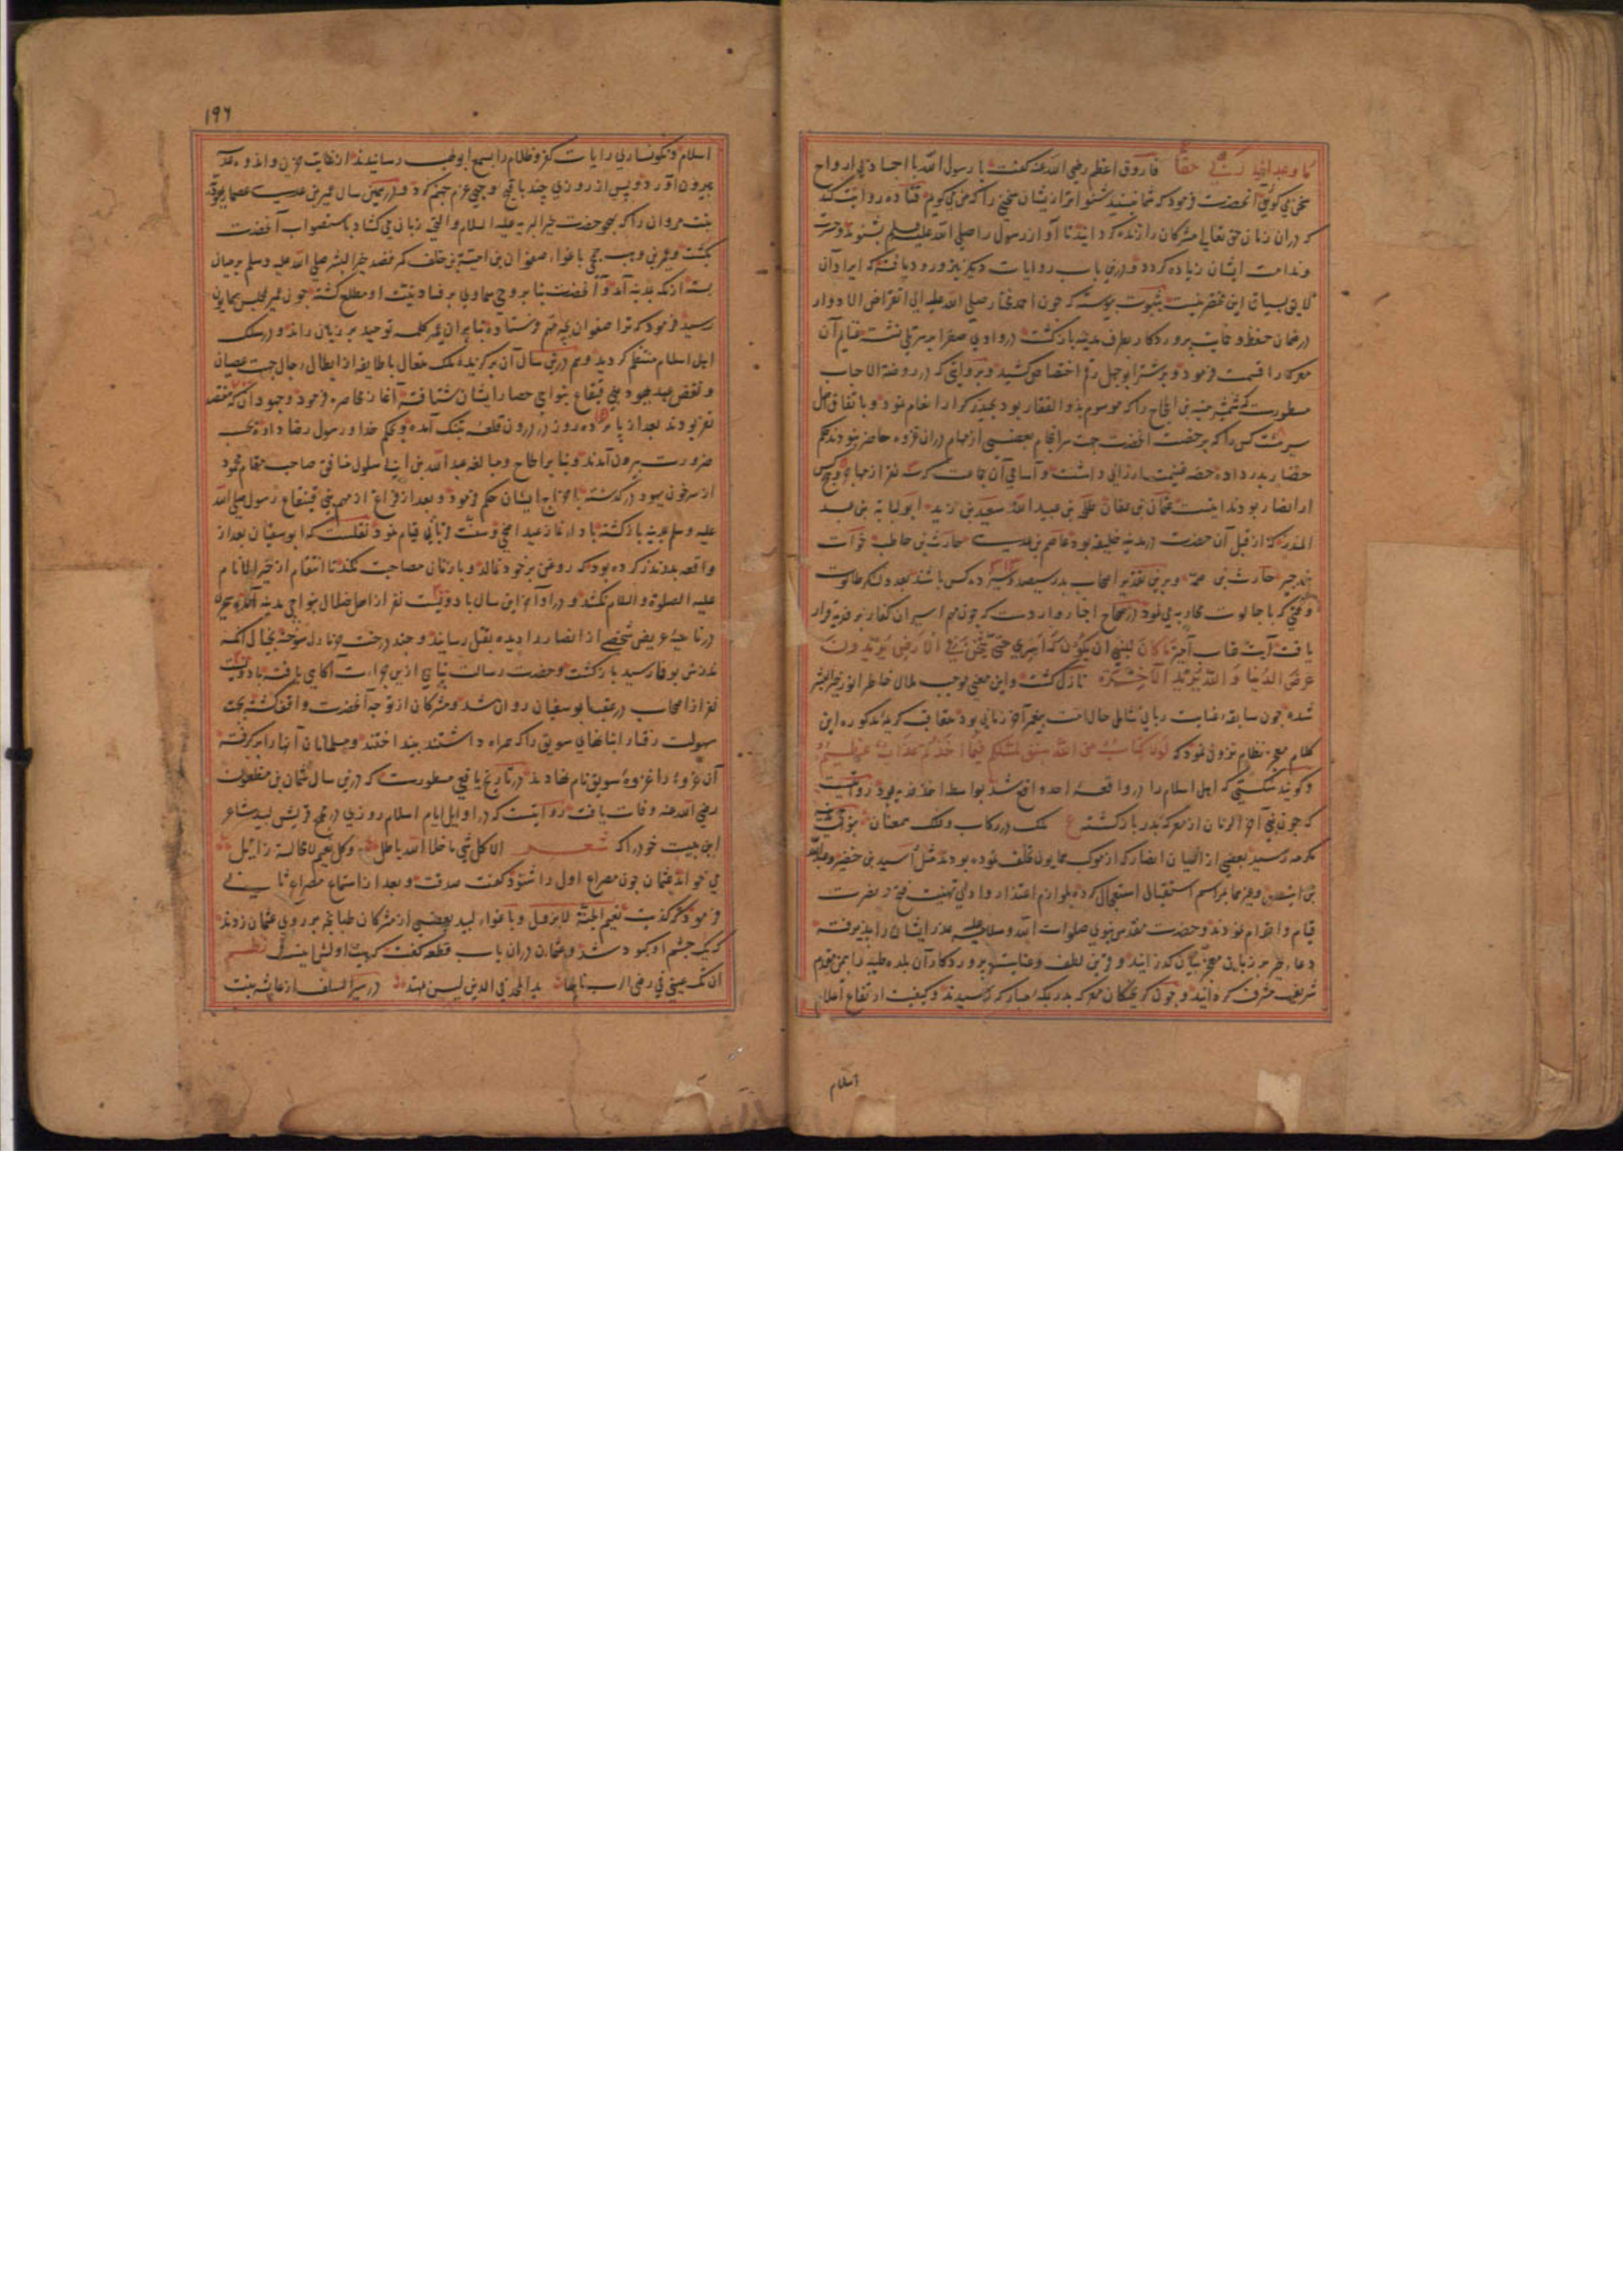 ما وعد ربی حقا فاروق اعظم رضی الله عنه گفت یا رسول الله با اجساد بی ارواح
سخن می کوئی آنحضرت فرمود که شما نیستید شنواتر از یشان سخنی را که من می کویم قتاده روایت کند
که در ان زمان حق تعالی مشرکان را زنده کردانید تا آواز رسول را صلی الله علیه وسلم بشنوند و حسرت
وندامت ایشان زیاده کردد و درین باب روایات دیکر نیز ورود یافته که ایراد آن
لایق بسیاق این مختصر نیست بثبوت پیوسته که چون احمد مختار صلی الله علیه الی انقراض الادوار
در ضمان حفظ و حمایت پروردکار بطرف مدینه بازکشت در وادی صفرا بر سر تلی نشسته غنایم آن
معرکه را قسمت فرمود و بر شتر ابوجهل رقم اختصاص کشید و بروایتی که در روضة الاحباب
مسطورست شمشیر منبه بن الحجاج را که موسوم بذو الفقار بود بحیدر کرار انعام نمود و باتفاق اهل
سیر هشت کس را که برخصت آنحضرت جهت سرانجام بعضی از مهام در ان غزوه حاضر نبودند حکم
حضار بدر داده حصه غنیمت ارزانی داشت و اسامی آن جماعت که سه نفر از مهاجر و پنج کس
از انصار بودند اینست عثمان بن عفان طلحه بن عبید الله سعید بن زید ابو لبابه بن عبد
المنذر که از قبل آن حضرت در مدینه خلیفه بود عاصم بن عدی حارث بن حاطب خوات
بن جبیر حارث بن صمه و برین تقدیر اصحاب بدر سیصد و سیزده کس باشند بعدد لشکر طالوت
وقتی که با جالوت محاربه می نمود در صحاح اخبار واردست که چون مهم اسیران کفار بر فدیه قرار
یافت آیت عتاب آمیز ما کان لنبی ان یکون له اسری حتی یثخن فی الارض تریدون
عرض الدنیا و الله یرید الآخرة نازل کشت و این معنی موجب ملال خاطر انور خیر البشر
شده چون سابقه عنایت ربانی شامل حال امت پیغمبر آخر زمانی بود متعاقب کریمه مذکوره این
کلام معجز نظام نزول نمود که لولا کتاب من الله سبق لمسکم فیما اخذتم عذاب عظیم
و کویند شکستی که اهل اسلام را در واقعه احد واقع شد بواسطه اخذ فدیه بود روایتست
که چون نبی آخر الزمان از معرکه بدر بازکشته ع ملک در رکاب و فلک همعنان
رسید بعضی از اعیان انصار که از موکب همایون تخلف نموده بودند مثل اسید بن حضیر و عبدالله
بن انیس وغیرهما بمراسم استقبال استعجال کرده بلوازم اعتذار و ادای تهنیت فتح و نصرت
قیام و اقدام نمودند و حضرت مقدس نبوی صلوات الله و سلامه علیه عذر ایشان را پذیرفته
دعاء خیر بر زبان معجز بیان کذرانید و قرین لطف و عنایت پروردکار آن بلده طیبه را بیمن مقدم
شریف مشرف کردانید و چون کریختکان معرکه بدر بمکه مبارکه رسیدند و کیفیت ارتفاع اعلام
اسلام
۱۹۶
اسلام و نکونساری رایات کفر و ظلام را بسمع ابو لهب رسانیدند از غایت حزن و اندوه
بیرون آورد و پس از روزی چند باقبح وجهی عزم جهنم کرد و در همین سال عمیر بن عدی عصماء یهودیه
بنت مروان را که بهجو حضرت خیر البریه علیه السلام و التحیه زبان می کشاد باستصواب آنحضرت
بکشت و عمیر بن وهب جمحی باغواء صفوان بن امیة بن خلف که قصد خیر البشر صلی الله علیه وسلم بر میان
بسته از مکه بمدینه آمد و آنحضرت بنا بر وحی سماوی بر فساد نیت او مطلع کشته چون عمیر بمجلس همایون
رسید فرمود که ترا صفوان بچه مهم فرستاده بنا بر ان عمیر کلمه توحید بر زبان راند و در سلک
اهل اسلام منتظم کردید و هم درین سال آن برکزیده ملک متعال با طایفه از ابطال رجال جهت عصیان
و نقض عهد یهود بنی قینقاع بنواحی حصار ایشان شتافته آغاز محاصره فرمود و جهود آن که هفتصد
نفر بودند بعد از پانزده روز در درون قلعه بتنک آمده و بحکم خدا و رسول رضا داده بحسب
ضرورت بیرون آمدند و بنا بر الحاح و مبالغه عبد الله بن ابی سلول منافق صاحب مقام محمود
از سر خون یهود درکذشته باخراج ایشان حکم فرمود و بعد از فراغ از مهم بنی قینقاع رسول صلی الله
علیه وسلم بمدینه بازکشته باداء نماز عید اضحی و سنت قربانی قیام نمود نقلست که ابو سفیان بعد از
واقعه بدر نذر کرده بود که روغن بر خود نمالد و با زنان مصاحبت نکند تا انتقام از خیر الانام
علیه الصلوة والسلام نکشد و در اواخر این سال با دویست نفر از اهل ضلال بنواحی مدینه آمد
در ناحیه عریض شخصی از انصار را دیده بقتل رسانید و چند درخت خرما را سوخته بخیال آنکه
نذرش بوفا رسید بازکشت و حضرت رسالت پناهی ازین جراءت آکاهی یافته با دویست
نفر از اصحاب در عقب ابو سفیان روان شد و مشرکان از توجه آنحضرت واقف کشته بجهت
سهولت رفتار انبانهای سویق را که همراه داشتند بینداختند و مسلمانان آنها را برکرفته
آن غزوه را غزوه سویق نام نهادند در تاریخ یافعی مسطورست که درین سال عثمان بن مظعون
رضی الله عنه وفات یافت روایتست که در اوایل ایام اسلام روزی در مجمع قریش لبید شاعر
این بیت خود را که شعر الا کل شی ما خلا الله باطل وکل نعیم لا محالة زائل
می خواند عثمان چون مصراع اول را شنود کفت صدقت و بعد از استماع مصراع ثانی
فرمود که کذبت نعیم الجنة لا یزول و باغواء لبید بعضی از مشرکان طبانچه بر روی عثمان زدند
که یک چشم او کبود شد و عثمان در ان باب قطعه کفت که بیت اولش اینست نظم
ان تک عینی فی رضی الرب نالها ید الملحد فی الدین لیس بمهتد در سیر السلف از عایشه بنت